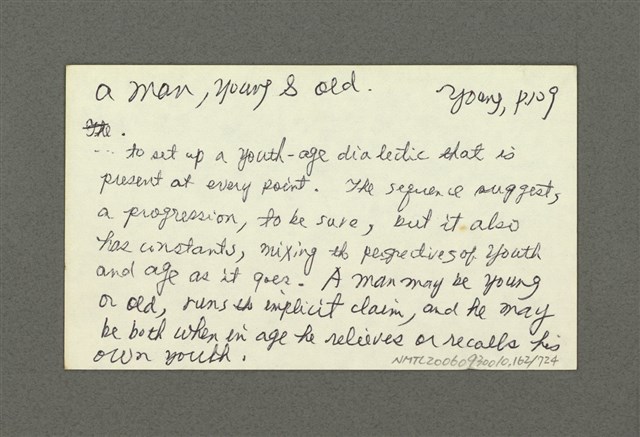 a man, Young & old. Young, p109
The.
... to set up a youth-age dialectic that is
present at every point. The sequence suggests
a progression, to be sure, but it also
has constants, mixing th perspectives of Youth
and age as it goes. A man may be Young
or old, runs th implicit claim, and he may
be both when in age he relieves or recalls his
own youth.
NMTL20060930010.162/724